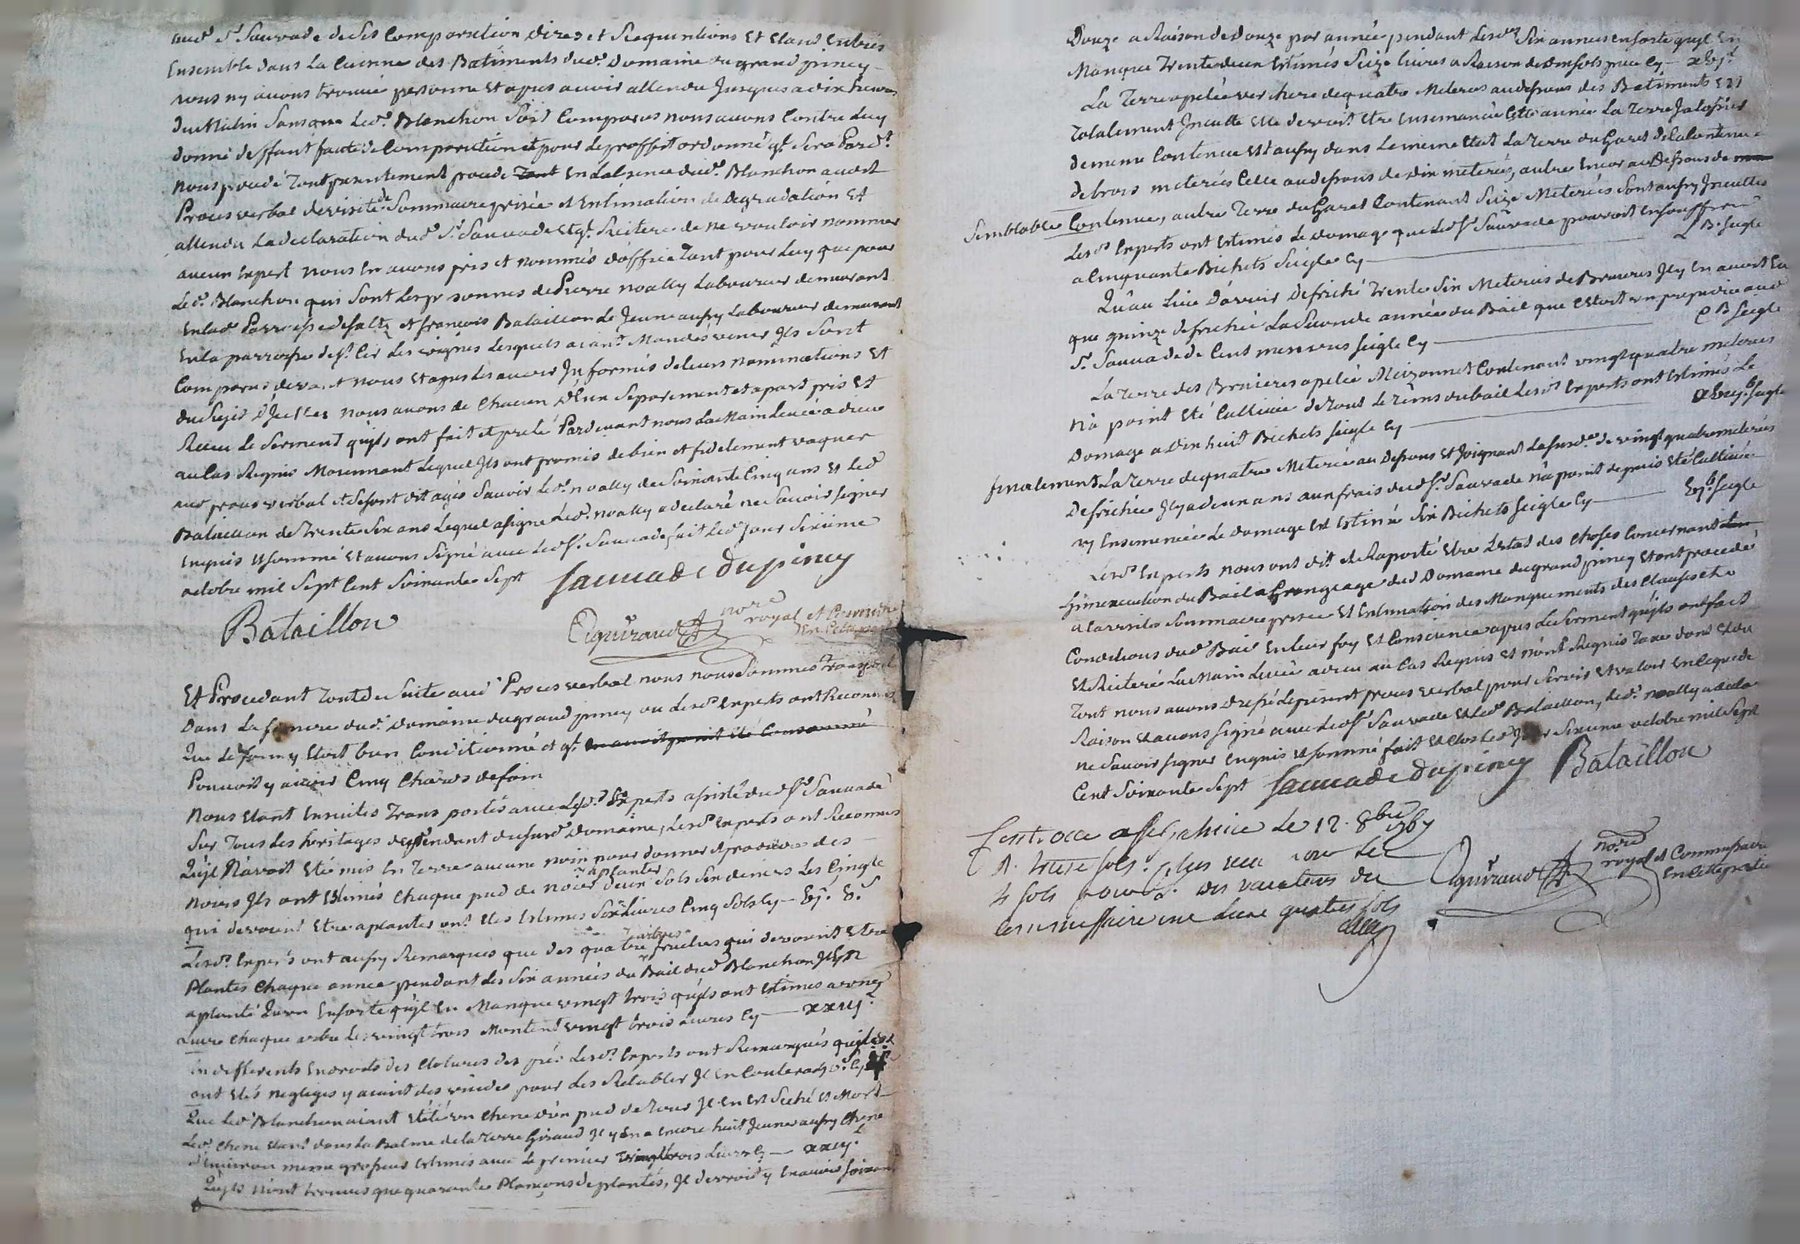 aud. Sr. Sauvade de sis Comparution dires et Requisitions Et Etant Entrés
Ensemble dans La Cuisine des Batiments dud. Domaine du grand pincy
nous ny avons trouvé personne Et apres avoir attendu Jusques a dix heures
du Matin Sans que Led. Blanchon Soit Comparu nous avons Contre Luy
donné deffaut faute de Comparution et pour Le proffit ordonné qt. Sera Par
nous procedé tout presentement procedé En Labsence dud. Blanchon audit
Proces verbal de visitte Sommaire prisée et Estimation de degradation Et
attendu La declaration dud. Sr. Sauvade Et qt. Reitere de ne vouloir nommer
aucun Expert nous En avons pris et nommés doffice Tant pour Luy que pour
Led. Blanchon qui Sont Les personnes de Pierre noally Laboureur demeurant
En lad. Parroisse de salt Et françois Bataillon Le Jeune aussy Laboureur demeurant
En la parroisse de St. Cir Les vignes Lesquels aiant Mandés venir Ils Sont
Comparus devant nous Et apres Les avoir Informés de Leurs nominations Et
du Sujet D'Icelles nous avons de Chacun D'Eux Separement et apart pris Et
Receu Le Serment quils ont fait et preté Pardevant nous La Main Levée a dieu
au Cas Requis Moyennant Lequel Ils ont promis de bien et fidelement vaquer
aud. proces verbal et se sont dit agés Savoir Led. noally de Soixante Cinq ans Et Led.
Bataillon de Trente Six ans Lequel a signé Led. noally a declaré ne Savoir Signer
Enquis Et Sommé Et avons Signé avec Led. Sr. Sauvade fait Led. Jour Sixieme
octobre mil Sept Cent Soixante Sept Sauvade Dupincy
Bataillon Eiguiraud nore. royal et Commissaire
En Cette partie
Et Procedant Tout de Suite aud. Proces verbal nous nous Sommes Transporté
Dans La fenière dud. Domaine du grand pincy ou Lesd. Experts ont Reconnus
Que Le foin y Etoit bien Conditionné et qt. n'avoit point été Consommé
Pouvoit y avoir Cinq Chârés de foin
Nous Etant Ensuites Trans portés avec Lesd. Experts assisté dud. Sr. Sauvade
Sur Tous Les heritages dependant du Susd. Domaine, Lesd. Experts ont Reconnus
Qu'il N'avoit Eté mis En Terre aucune noix pour donner et produire des
Noiers Ils ont Estimés Chaque pied de noier a planter deux Sols Six deniers Les Cinqte.
qui devoient Etre aplantés ont Etés Estimés Six Livres Cinq Sols Cy — vj. ₶ 5. s
Lesd. Experts ont aussy Remarqués que des quatre arbres fruitiers qui devoient Etre
Plantés Chaque année pendant Les Six années du Bail dud. Blanchon Il n'en
a planté Qu'un Ensorte qu'il En Manque vingt trois qu'ils ont Estimés a une
Livre Chaque arbre Les vingt trois Montent vingt trois Livres Cy — xxiij ₶
En differents Endroits des Clotures des prés Lesd. Experts ont Remarqués qu'elles
ont Etés Negligés y aiant des vuides pour Les Retablir Il En Coutera
Que Led. Blanchon aiant Etété un Chene d'un pied de Tour Il En Est Seché Et Mort
Led. Chene Etant dans La Balme de La Terre Giraud Il y En a Encore huit Jeune aussy Chene
d'Environ meme grosseur Estimés avec Le premier vingt trois Livres Cy — xxiij. ₶
Qu'ils N'ont trouvés que quarante Plançons de plantés, Il devroit y En avoir Soixante
Douze a Raison de Douze par année pendant Lesd. Six années Ensorte qu'il En
Manque Trente deux Estimés Seize Livres a Raison de dix Sols piece Cy — xvj. ₶
La Terre apelée verchere de quatre Meterés au dessous des Batiments Est
Totalement Inculte Elle devoit Etre Ensemancé Cette année La Terre
de meme Contenue Est aussy dans Le meme Etat La Terre du Garet de La Contenue
de trois meterés Celle au dessous de dix meterés, autre Encor au Dessous de
Semblable Contenue, autre Terre du Garet Contenant Seize Meterés Sont aussy Incultes
Lesd. Experts ont Estimés Le Domage que Led. Sr. Sauvade pouvoit En Souffrir
a Cinquante Bichets Seigle Cy — L B. Seigle
Qu'au Lieu D'avoir Defriché Trente Six Meterés de Bruieres Il y En avoit Eu
que quinze defriché La Seconde année du Bail que C'étoit un prejudice aud.
Sr. Sauvade de Cent mesures Seigle Cy — C B Seigle
La Terre des Bruieres apelée Mezonnet Contenant vingt quatre meterés
N'a point Eté Cultivée de Tout Le Tems du bail Lesd. Experts ont Estimés Le
Domage a Dix huit Bichets Seigle Cy — xviij. b. Seigle
finalement La Terre de quatre Meterée au Dessous Et Joignant La Susd. de vingt quatre meterés
Defrichée Il y a deux ans aux frais dud. Sr. Sauvade N'a point depuis Eté Cultivée
ny Ensemencée Le domage Est Estimé Six Bichets Seigle Cy — vj. b. Seigle
Lesd. Experts nous ont dit et Raporté Etre L'Etat des Choses Concernant
L'Inexecution du Bail a Grangeage du Domaine du grand pincy Et ont procedé
a La visite Sommaire prisée Et Estimation des Manquements des Clauses Et
Conditions dud. Bail En leur foy Et Conscience apres Le Serment qu'ils ont fait
Et Reiteré La Main Levée a dieu au Cas Requis Et n'ont Requis Taxe dont Et du
Tout nous avons dressé Le present proces verbal pour Servir Et valoir En Ce que de
Raison Et avons Signé avec Led. Sr. Sauvade Et Led. Bataillon, Led. noally a declaré
ne Savoir Signer Enquis Et Sommé fait Et Clos Les Jour Sixieme octobre mil Sept
Cent Soixante Sept Sauvade Dupincy Bataillon
Controllé a St. Galmier Le 12. 8bre. 1767
R. treize sols.
4 sols pour Les vacations du Eiguiraud nore. royal et Commissaire
Commissaire une Livre quatre sols En Cette partie